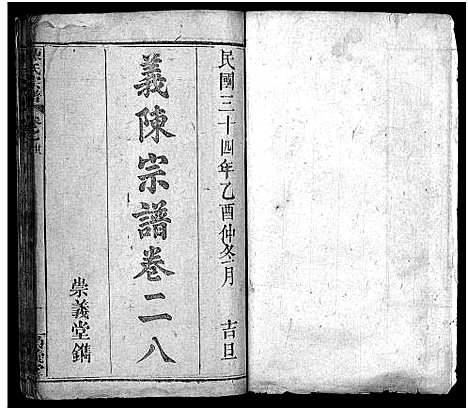 民國三十四年乙酉仲冬月 吉旦
義陳宗譜卷二八
崇義堂鐫